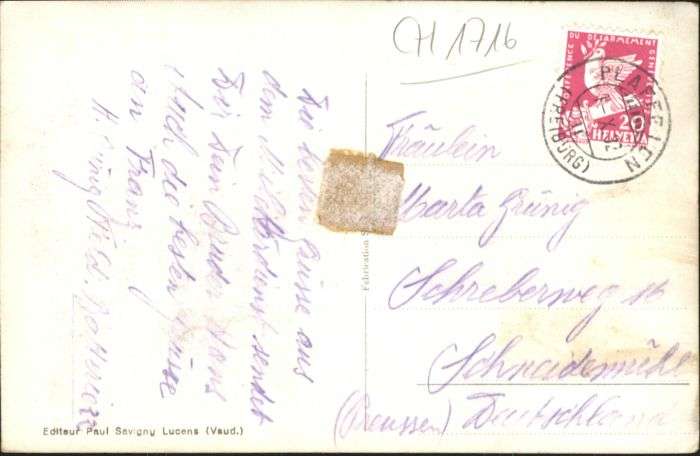 CH 1716
CONFERENCE DU DESARMEMENT GENEVE
20
HELVETIA
PLAFFEIEN
(FREIBURG)
Die besten Grüsse aus
dem Militärdienst sendet
Dir Dein Bruder Hans
Auch die besten Grüsse
an Franz
H. Grünig
Fräulein
Marta Grünig
Schreberweg 16
Schneidemühl
(Preussen) Deutschland
Fabrication S
Editeur Paul Savigny Lucens (Vaud.)